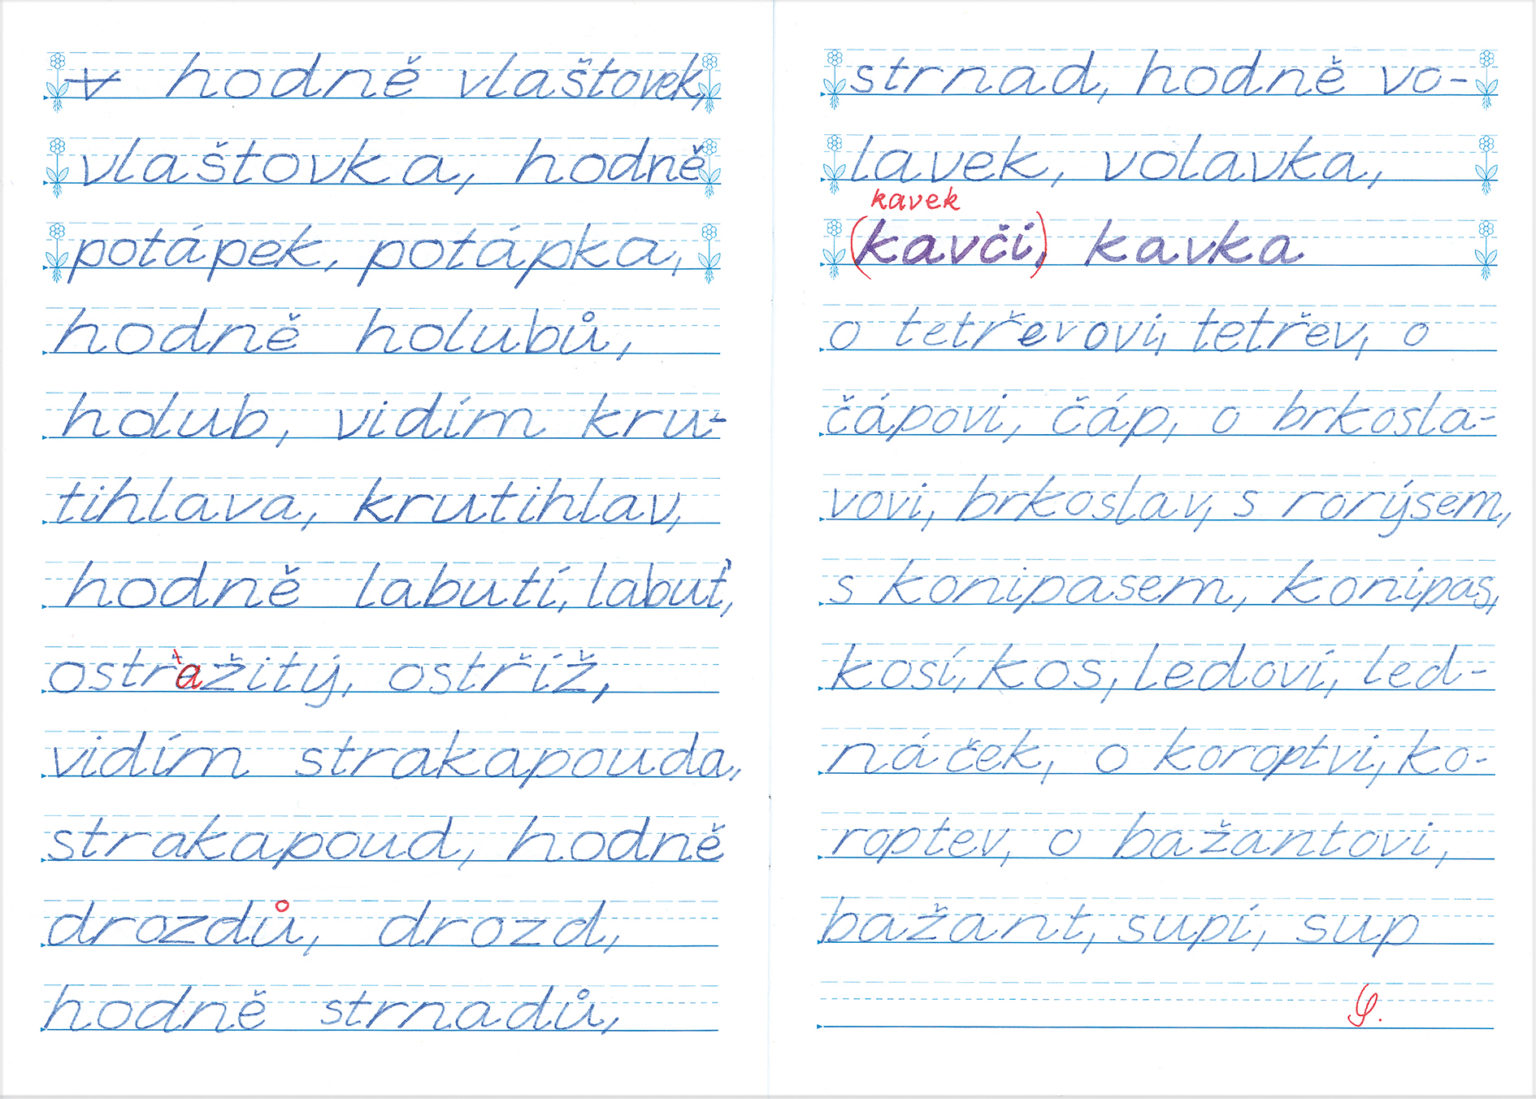 hodně vlaštovek,
vlaštovka, hodně
potápek, potápka,
hodně holubů,
holub, vidím kru-
tihlava, krutihlav,
hodně labutí, labuť,
ostražitý, ostříž,
vidím strakapouda,
strakapoud, hodně
drozdů, drozd,
hodně strnadů,
strnad, hodně vo-
lavek, volavka,
kavek
(kavčí,) kavka
o tetřevovi, tetřev, o
čápovi, čáp, o brkosla-
vovi, brkoslav, s rorýsem,
s konipasem, konipas,
kosí, kos, ledoví, led-
náček, o koroptvi, ko-
roptev, o bažantovi,
bažant, supí, sup